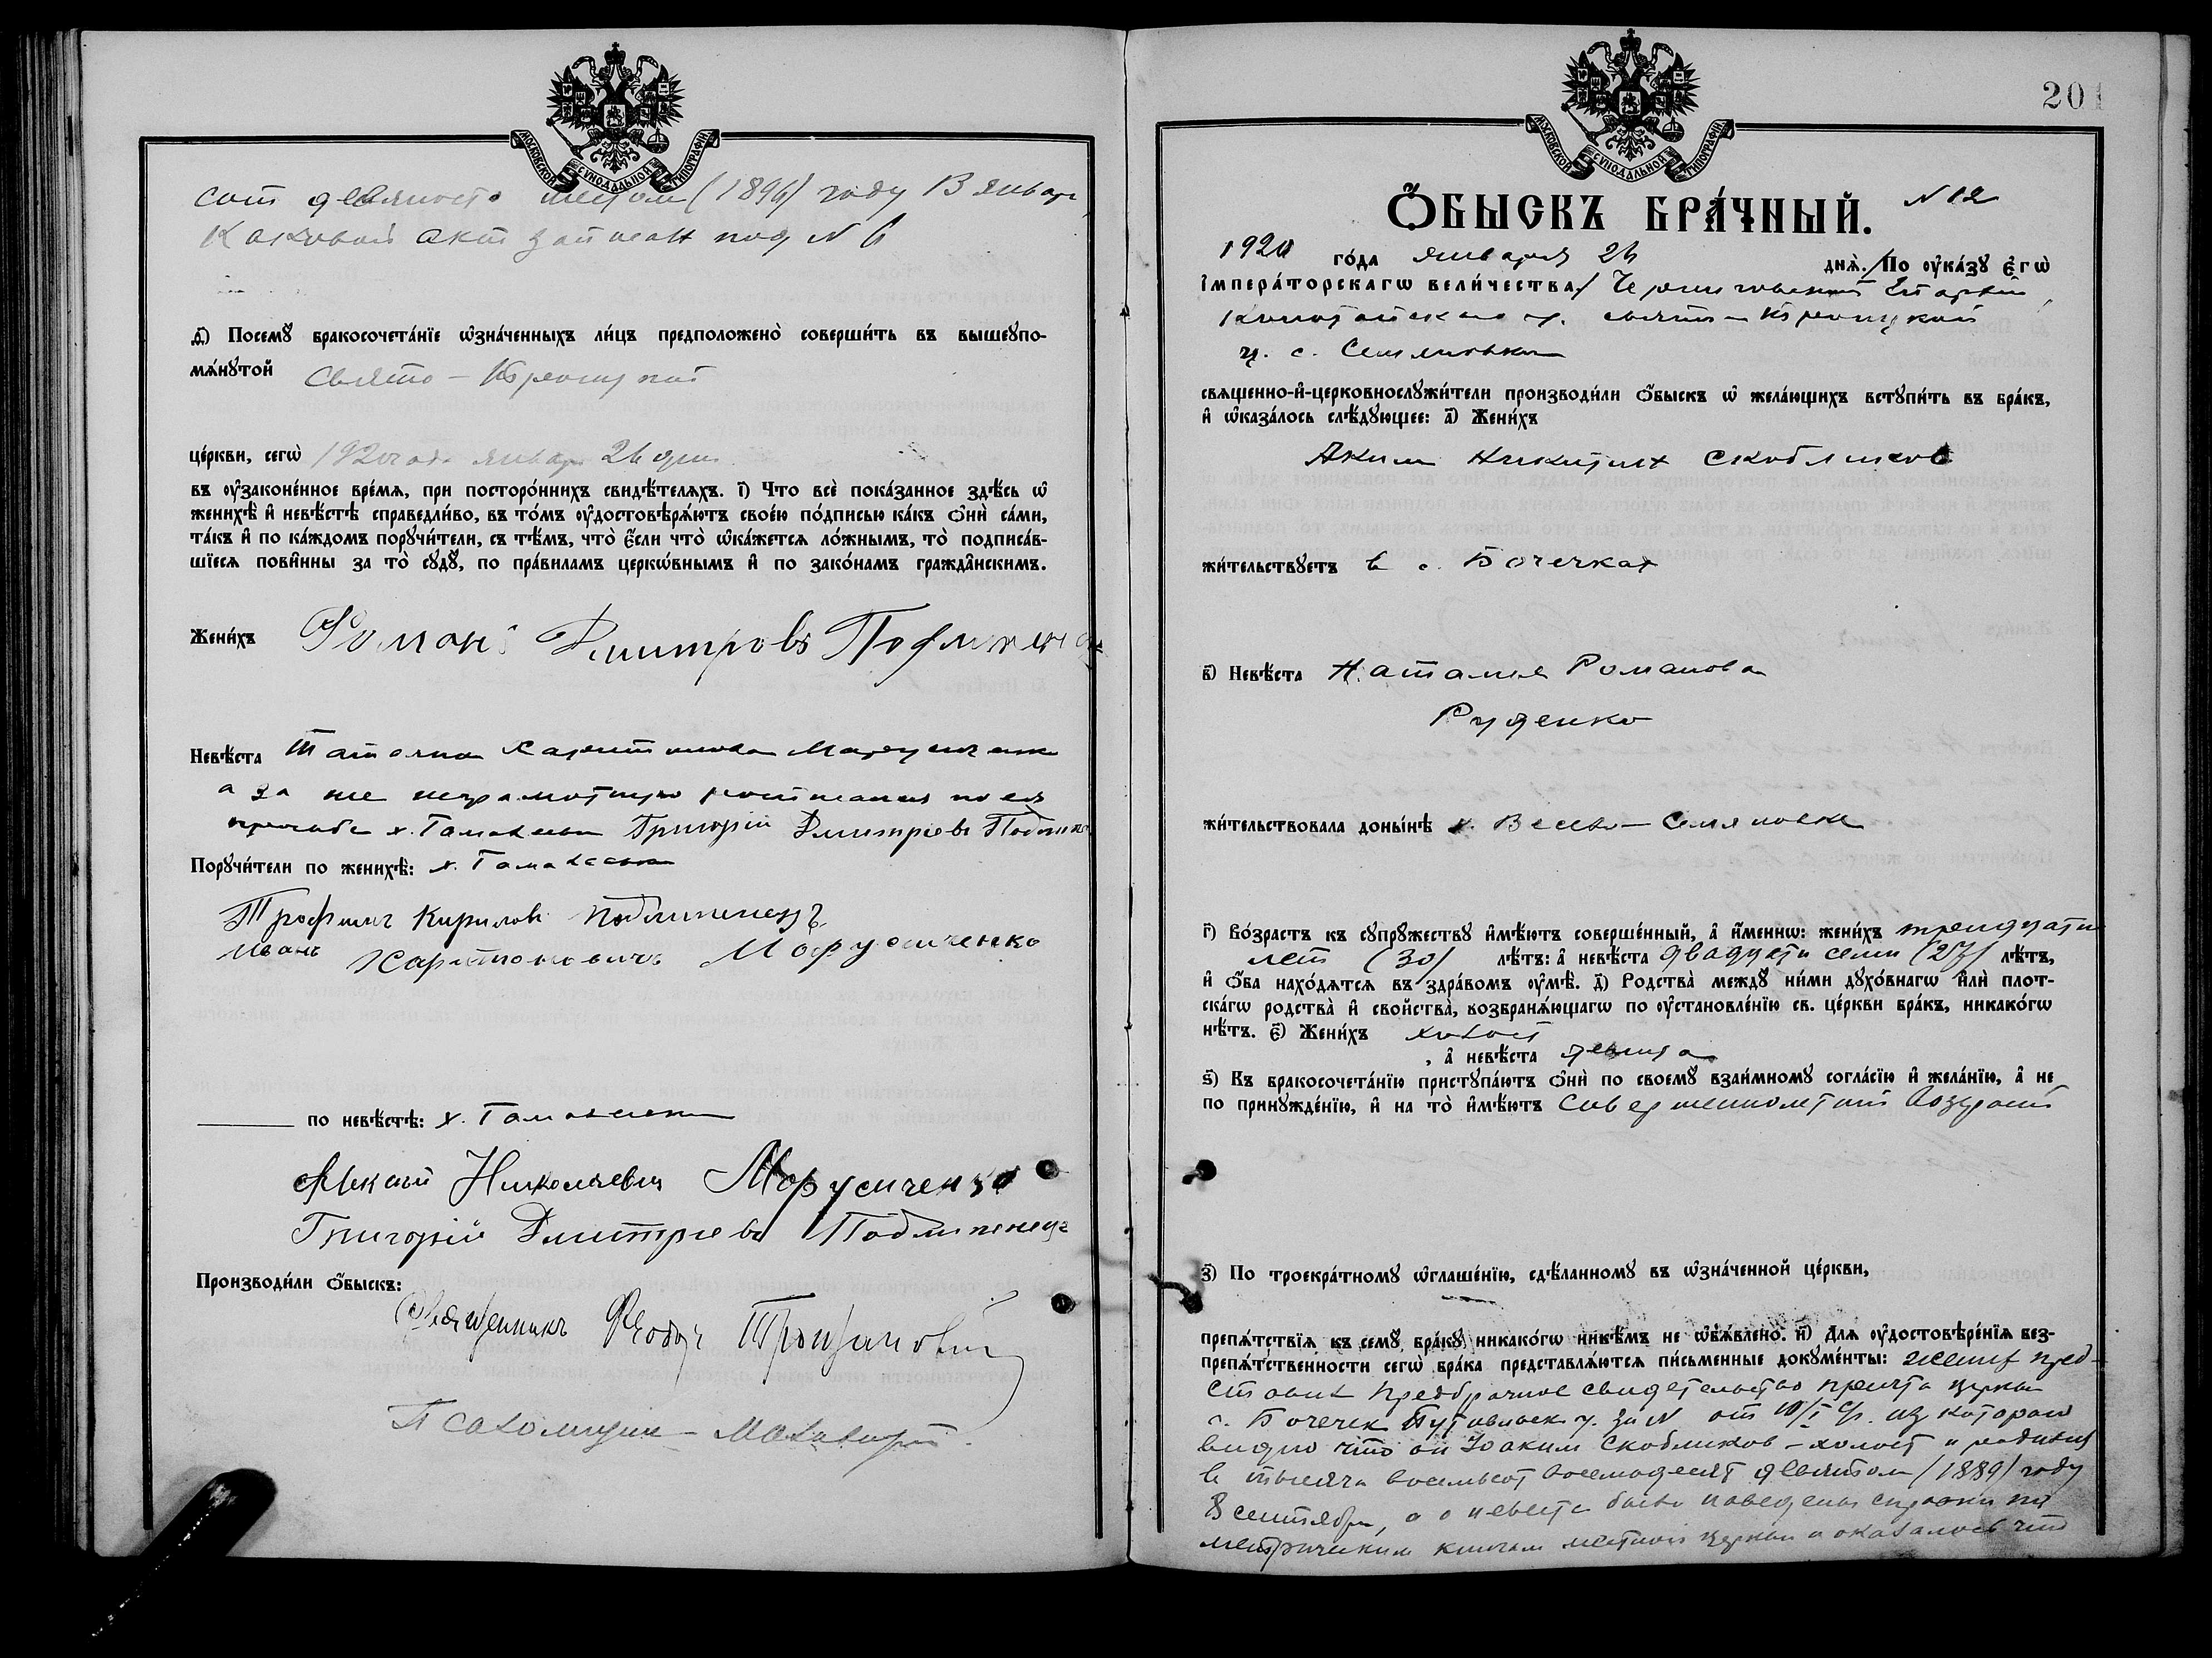 МОСКОВСКОЙ СѴНОДАЛЬНОЙ ТИПОГРАФІИ
сот девяносто шестом (1896) году 13 январ
каковой акт записан под N 6
д҃і) Посемꙋ̀ бракосочета́нїе ѡ҆зна́ченныхъ ли́цъ предположено̀ соверши́ть въ вышеꙋпо-
мѧ́нꙋтой Свято-Троицкой
це́ркви, сегѡ̀ 1920 года январ 26 дня
въ ᲂу҆законе́нное вре́мѧ, при посторо́ннихъ свидѣ́телѧхъ. і҃) Что всѐ пока́занное здѣ́сь ѡ҆
женихѣ̀ и҆ невѣ́стѣ справедли́во, въ то́мъ ᲂу҆достовѣрѧ́ютъ свое́ю по́дписью ка́къ ѻ҆нѝ са́ми,
та́къ и҆ по ка́ждомъ порꙋчи́тели, съ тѣ́мъ, что̀ є҆́сли что̀ ѡ҆ка́жетсѧ ло́жнымъ, то̀ подписа́в-
шїесѧ пови́нны за то̀ сꙋдꙋ̀, по пра́виламъ церкѡ́внымъ и҆ по зако́намъ гражда̂нскимъ.
Жени́хъ Романъ Дмитровъ
Невѣ́ста Татьяна Харитонова Марусиченко
а за нее неграмотную росписался по ея
просьбе х. Григорій Дмитріевъ
Порꙋчи́тели по женихѣ̀: х.
Трофимъ Кириловъ Подлипенецъ
Иванъ Харитоновичъ Марусиченко
по невѣ́стѣ: х.
Алексей Николаевич Марусиченко
Григорій Дмитріевъ Подлипенецъ
Производи́ли ѻ҆́быскъ:
Священникъ Ѳеодоръ
Псаломщик
201
МОСКОВСКОЙ СѴНОДАЛЬНОЙ ТИПОГРАФІИ
Ѻ҆́БЫСКЪ БРА́ЧНЫЙ. N 12
1920 го́да января 26 днѧ̀. / По ᲂу҆ка́зꙋ є҆гѡ̀
і҆мпера́торскагѡ вели́чества / Черниговской Епархии
Конотопского у. Свято-Троицкой
ц. с. Семяновки
свѧщенно-и҆-церковнослꙋжи́тели производи́ли ѻ҆́быскъ ѡ҆ жела́ющихъ встꙋпи́ть въ бра́къ,
и҆ ѡ҆каза́лось слѣ́дꙋющее: а҃) Жени́хъ
Аким Никитин Скобликов
жи́тельствꙋетъ в с. Бочечках
в҃) Невѣ́ста Наталия Романова
Руденко
жи́тельствовала доны́нѣ х. Весело-Семяновке
г҃) Во́зрастъ къ сꙋпрꙋ́жествꙋ и҆мѣ́ютъ соверше́нный, а҆ и҆́меннѡ: жени́хъ тридцати
лет (30) лѣ́тъ: а҆ невѣ́ста двадцати семи (27) лѣ́тъ,
и҆ ѻ҆́ба нахо́дѧтсѧ въ здра́вомъ ᲂу҆мѣ̀. д҃) Родства̀ междꙋ̀ ни́ми дꙋхо́внагѡ и҆лѝ плот-
ска́гѡ родства̀ и҆ сво́йства, возбранѧ́ющагѡ по ᲂу҆становле́нїю св. це́ркви бра́къ, никако́гѡ
нѣ́тъ. є҃) Жени́хъ холост
, а҆ невѣ́ста девица
ѕ҃) Къ бракосочета́нїю пристꙋпа́ютъ ѻ҆нѝ по своемꙋ̀ взаи́мномꙋ согла́сїю и҆ жела́нїю, а҆ не
по принꙋжде́нїю, и҆ на то̀ и҆мѣ́ютъ совершеннолетний возраст
з҃) По троекра́тномꙋ ѡ҆глаше́нїю, сдѣ́ланномꙋ въ ѡ҆зна́ченной це́ркви,
препѧ́тствїѧ къ семꙋ̀ бра́кꙋ никако́гѡ никѣ́мъ не ѡ҆б̾ѧ́влено. и҃) Длѧ ᲂу҆достовѣре́нїѧ без-
препѧ́тственности сегѡ̀ бра́ка представлѧ́ютсѧ пи́сьменные докꙋме́нты: жених пред-
ставил предбрачное свидетельство причта церкви
с. Бочечек Путивльск. у. за N от 10/I с/г. из которого
видно что он Иоаким Скобликов - холост и родился
в тысяча восемьсот восемьдесят девятом (1889) году
8 сентября, а о невесте было наведена справки по
метрическим книгам местной церкви и оказалось что